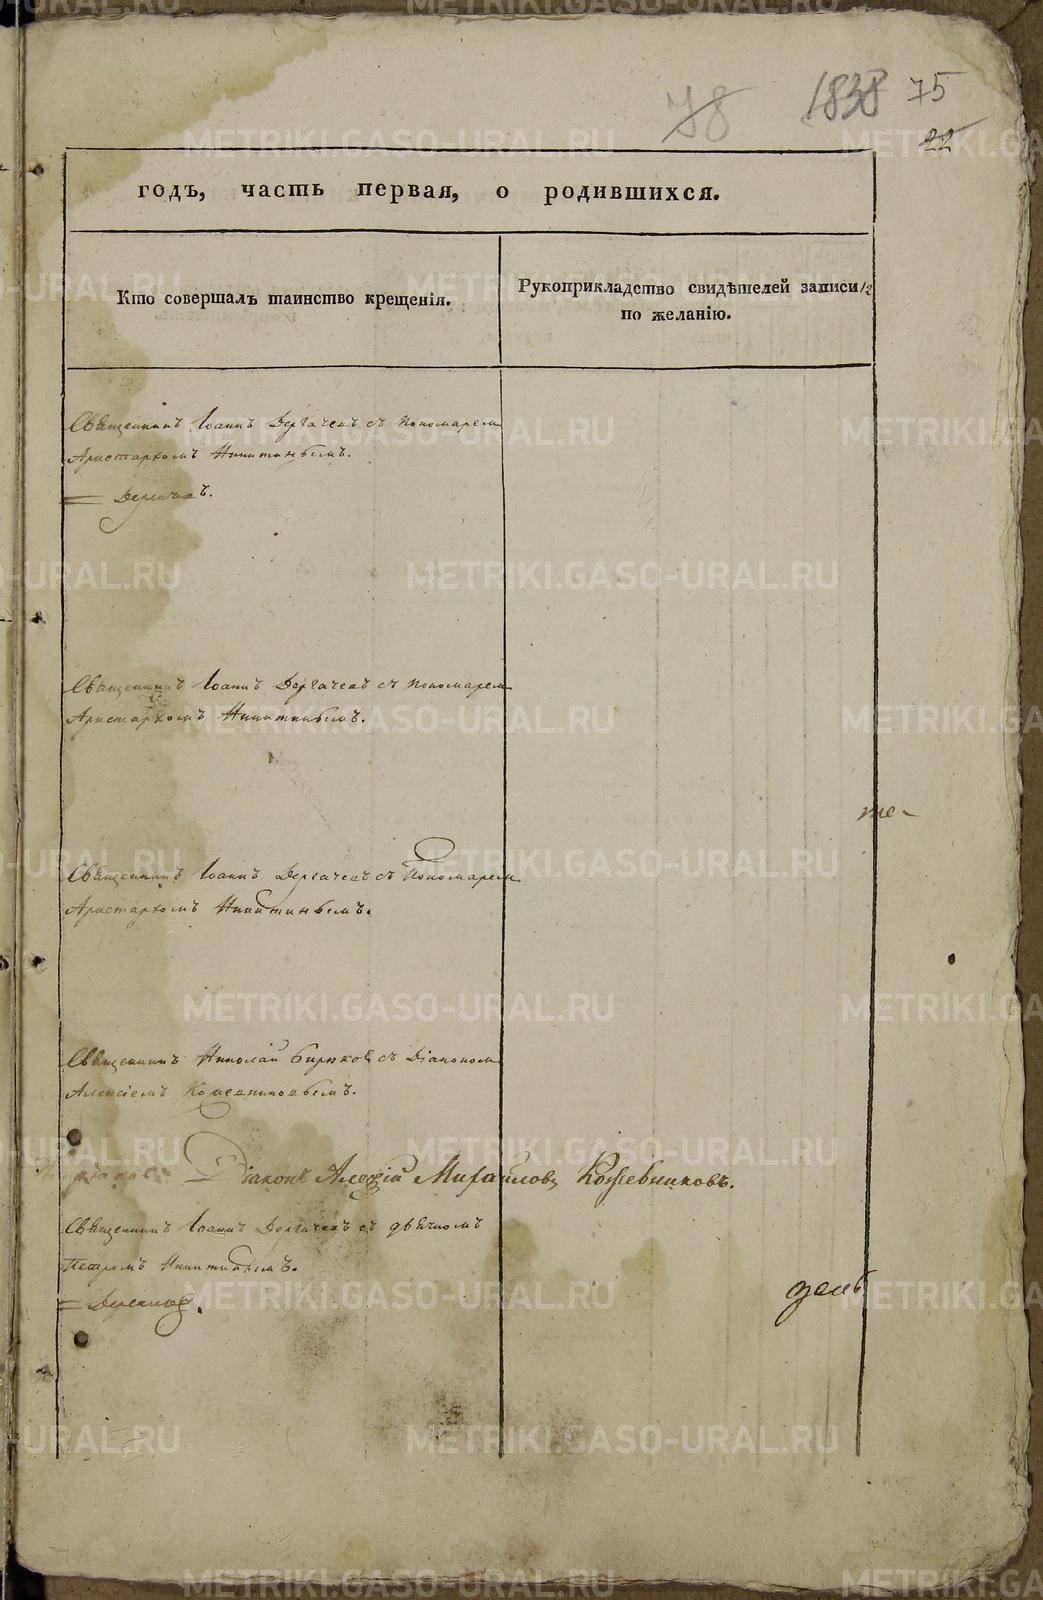 78 1838 75
22
годъ, часть первая, о родившихся.
Кто совершалъ таинство крещенія.
Рукоприкладство свидѣтелей записи
по желанію.
Священникъ Іоаннъ Дергачевъ съ Пономаремъ
Аристархомъ Никитинымъ.
Священникъ Іоаннъ Дергачевъ съ Пономаремъ
Аристархомъ Никитинымъ.
Священникъ Іоаннъ Дергачевъ съ Пономаремъ
Аристархомъ Никитинымъ.
Священникъ Николай Бирюковъ съ Діакономъ
Алексіемъ Кожевниковымъ.
Діаконъ Алексій Михайловъ Кожевниковъ.
Священникъ Іоаннъ Дергачевъ съ дьячкомъ
Петромъ Никитинымъ.
METRIKI.GASO-URAL.RU